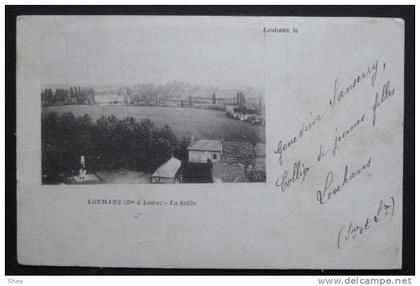 Louhans, le
LOUHANS (Sne & Loire) - La Seille
Geneviève Vanserry,
Collège de jeunes filles
Louhans
(S. et L.re)
Rhea
www.delcampe.net